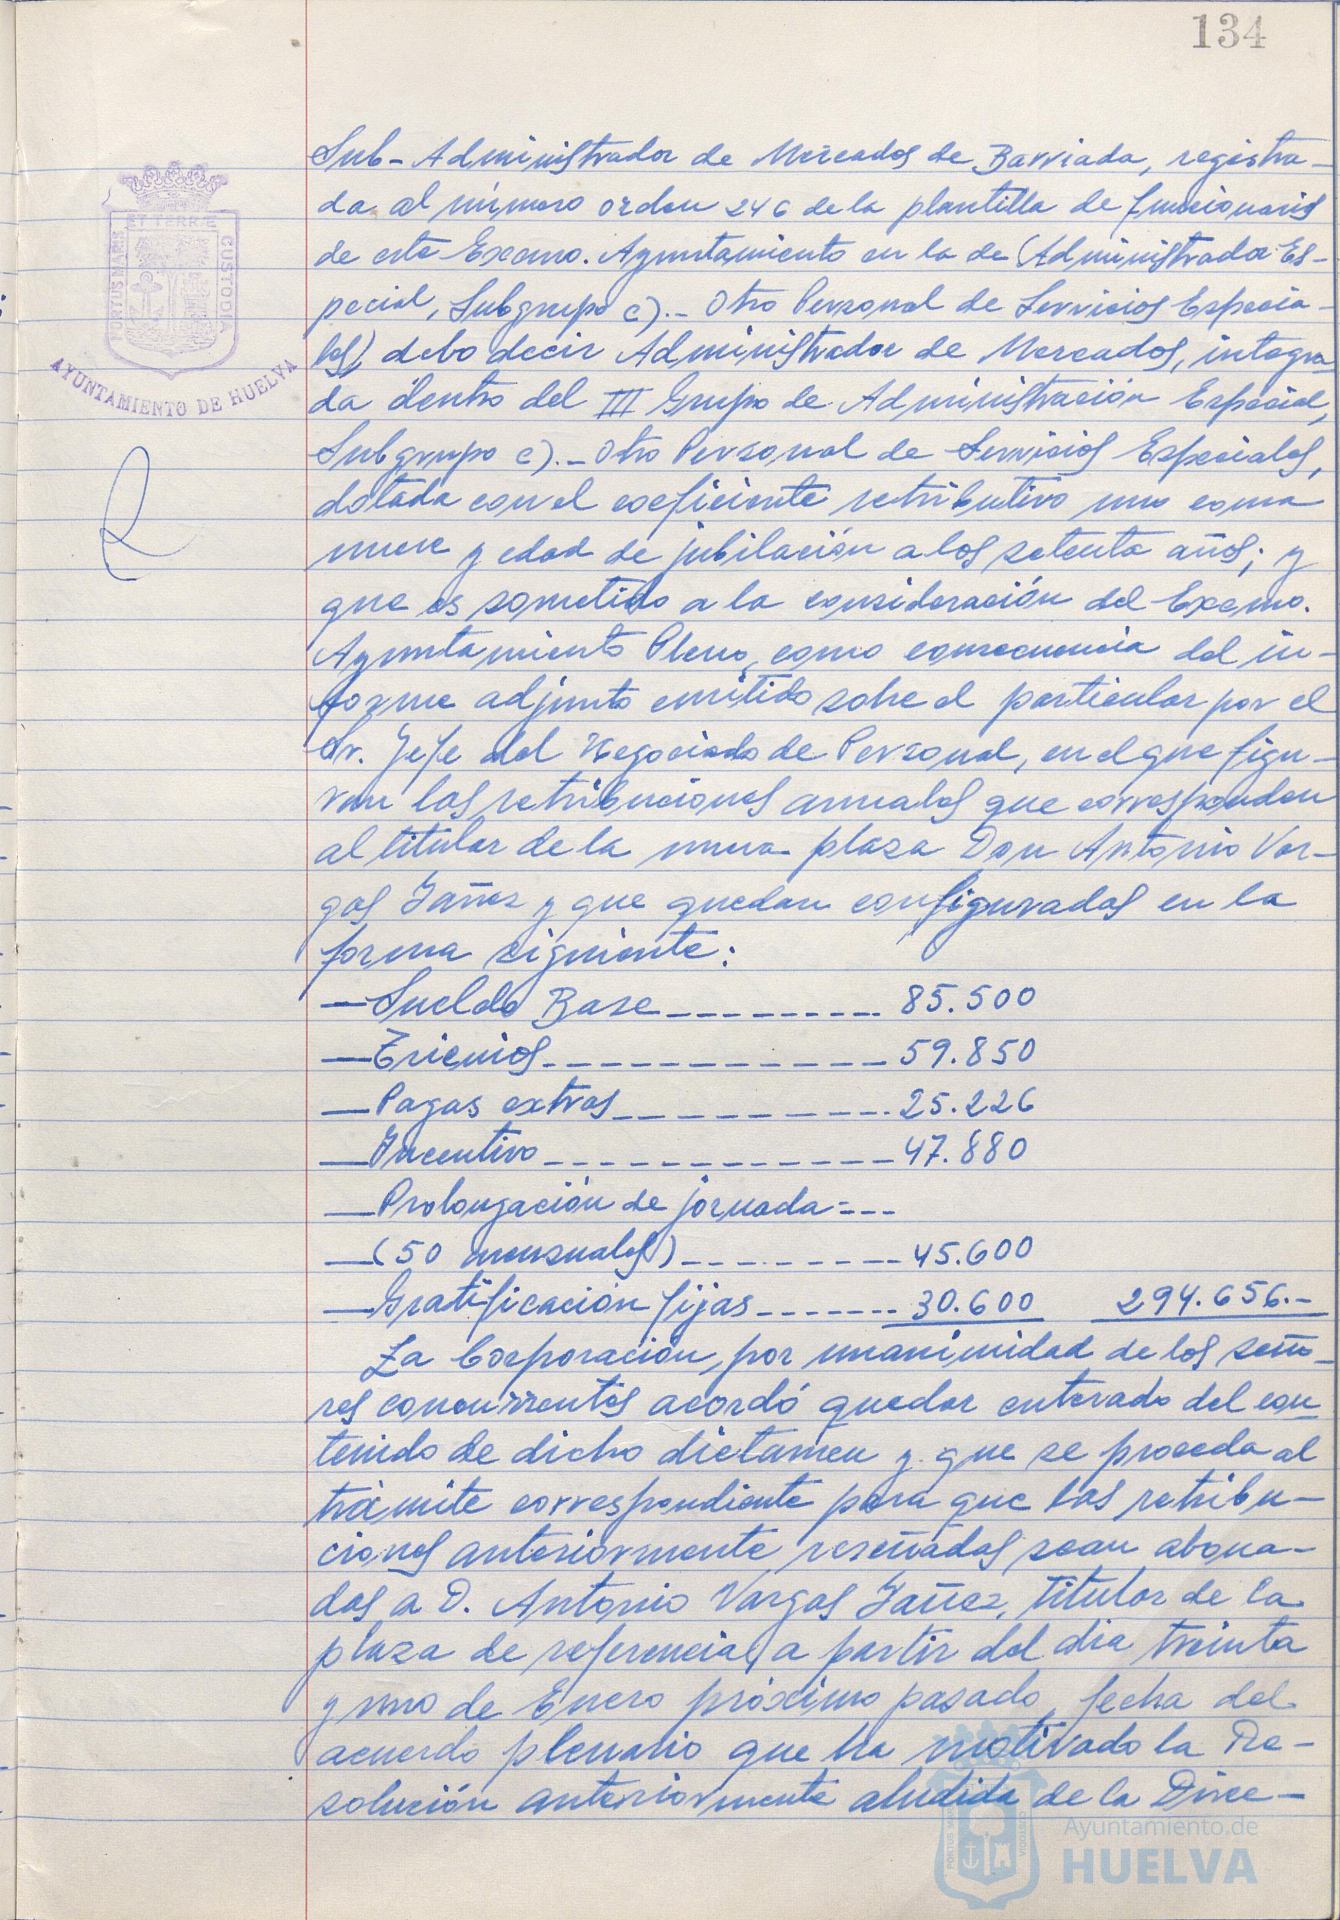 134
PORTUS MARIS ET TERRÆ CUSTODIA
AYUNTAMIENTO DE HUELVA
Sub-Administrador de Mercados de Barriada, registra-
da al número orden 246 de la plantilla de funcionarios
de este Excmo. Ayuntamiento en la de (Administrador Es-
pecial, Subgrupo c).- Otro Personal de Servicios Especia-
les) debo decir Administrador de Mercados, integra
da dentro del III Grupo de Administración Especial,
Subgrupo c).- Otro Personal de Servicios Especiales,
dotada con el coeficiente retributivo uno coma
nueve y edad de jubilación a los setenta años; y
que es sometido a la consideración del Excmo.
Ayuntamiento Pleno, como consecuencia del in-
forme adjunto emitido sobre el particular por el
Sr. Jefe del Negociado de Personal, en el que figu-
ran las retribuciones anuales que corresponden
al titular de la nueva plaza Don Antonio Var-
gas Yañez y que quedan configuradas en la
forma siguiente:
—Sueldo Base--------- 85.500
—Trienios------------ 59.850
—Pagas extras---------- 25.226
—Incentivo------------- 47.880
—Prolongación de jornada=--
—(50 mensuales)--------- 45.600
—Gratificación fijas------- 30.600 294.656.-
La Corporación, por unanimidad de los seño-
res concurrentes acordó quedar enterado del con
tenido de dicho dictamen y que se proceda al
trámite correspondiente para que las retribu-
ciones anteriormente reseñadas sean abona-
das a D. Antonio Vargas Yañez, titular de la
plaza de referencia, a partir del dia treinta
y uno de Enero próximo pasado, fecha del
acuerdo plenario que ha motivado la Re-
solución anteriormente aludida de la Direc-
Ayuntamiento de
HUELVA